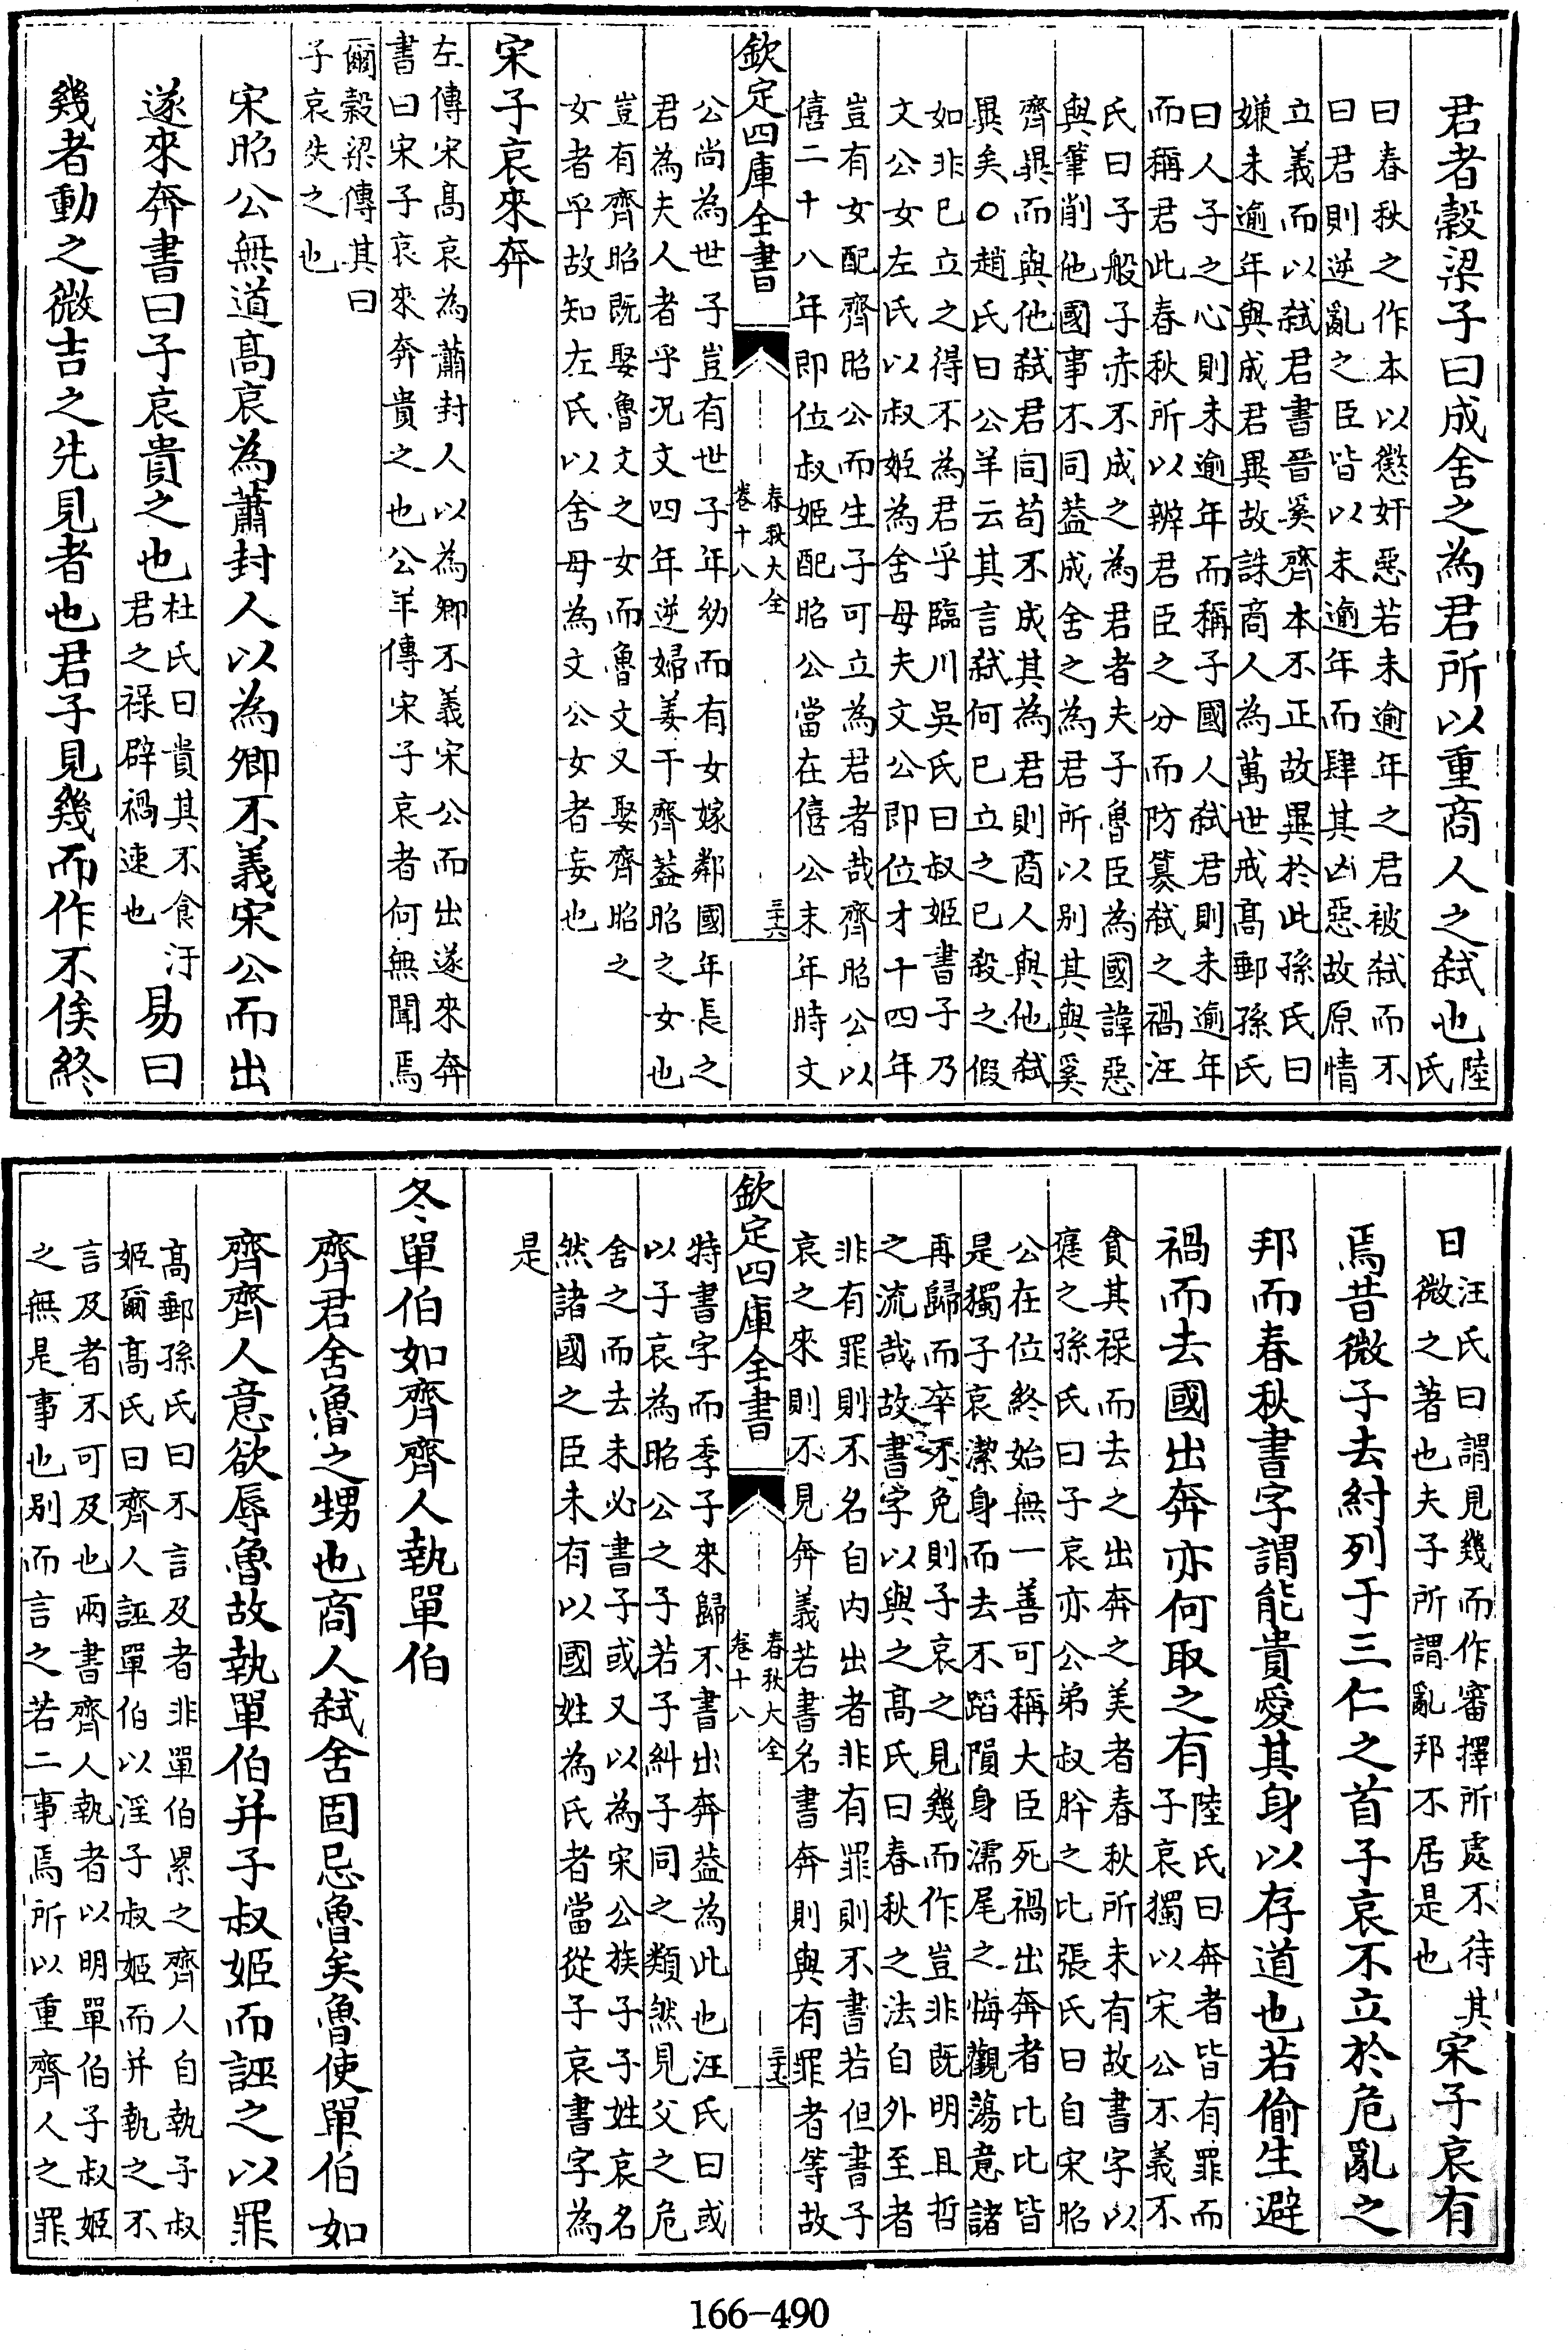 君者穀梁子曰成舍之為君所以重商人之弑也陸氏
曰春秋之作本以懲奸惡若未逾年之君被弑而不
曰君則逆亂之臣皆以未逾年而肆其凶惡故原情
立義而以弑君書晉奚齊本不正故異於此孫氏曰
嫌未逾年與成君異故誅商人為萬世戒高郵孫氏
曰人子之心則未逾年而稱子國人弑君則未逾年
而稱君此春秋所以辨君臣之分而防篡弑之禍汪
氏曰子般子赤不成之為君者夫子魯臣為國諱惡
與筆削他國事不同葢成舍之為君所以别其與奚
齊異而與他弑君同苟不成其為君則商人與他弑
異矣○趙氏曰公羊云其言弑何已立之已殺之假
如非已立之得不為君乎臨川吳氏曰叔姬書子乃
文公女左氏以叔姬為舍母夫文公即位才十四年
豈有女配齊昭公而生子可立為君者哉齊昭公以
僖二十八年即位叔姬配昭公當在僖公末年時文
欽定四庫全書
春秋大全
卷十八
三十六
公尚為世子豈有世子年幼而有女嫁鄰國年長之
君為夫人者乎况文四年逆婦姜于齊葢昭之女也
豈有齊昭既娶魯文之女而魯文又娶齊昭之
女者乎故知左氏以舍母為文公女者妄也
宋子哀來奔
左傳宋高哀為蕭封人以為卿不義宋公而出遂來奔
書曰宋子哀來奔貴之也公羊傳宋子哀者何無聞焉
爾穀梁傳其曰
子哀失之也
宋昭公無道高哀為蕭封人以為卿不義宋公而出
遂來奔書曰子哀貴之也杜氏曰貴其不食汙君之祿辟禍速也易曰
幾者動之微吉之先見者也君子見幾而作不俟終
日汪氏曰謂見幾而作審擇所處不待其微之著也夫子所謂亂邦不居是也宋子哀有
焉昔微子去紂列于三仁之首子哀不立於危亂之
邦而春秋書字謂能貴愛其身以存道也若偷生避
禍而去國出奔亦何取之有陸氏曰奔者皆有罪而子哀獨以宋公不義不
貪其祿而去之出奔之美者春秋所未有故書字以
襃之孫氏曰子哀亦公弟叔肸之比張氏曰自宋昭
公在位終始無一善可稱大臣死禍出奔者比比皆
是獨子哀潔身而去不蹈隕身濡尾之悔觀蕩意諸
再歸而卒不免則子哀之見幾而作豈非既明且哲
之流哉故書字以與之高氏曰春秋之法自外至者
非有罪則不名自内出者非有罪則不書若但書子
哀之來則不見奔義若書名書奔則與有罪者等故
欽定四庫全書
春秋大全
卷十八
三十七
特書字而季子來歸不書出奔葢為此也汪氏曰或
以子哀為昭公之子若子糾子同之類然見父之危
舍之而去未必書子或又以為宋公族子子姓哀名
然諸國之臣未有以國姓為氏者當從子哀書字為
是
冬單伯如齊齊人執單伯
齊君舍魯之甥也商人弑舍固忌魯矣魯使單伯如
齊齊人意欲辱魯故執單伯并子叔姬而誣之以罪
高郵孫氏曰不言及者非單伯累之齊人自執子叔
姬爾高氏曰齊人誣單伯以淫子叔姬而并執之不
言及者不可及也兩書齊人執者以明單伯子叔姬
之無是事也别而言之若二事焉所以重齊人之罪
166-490